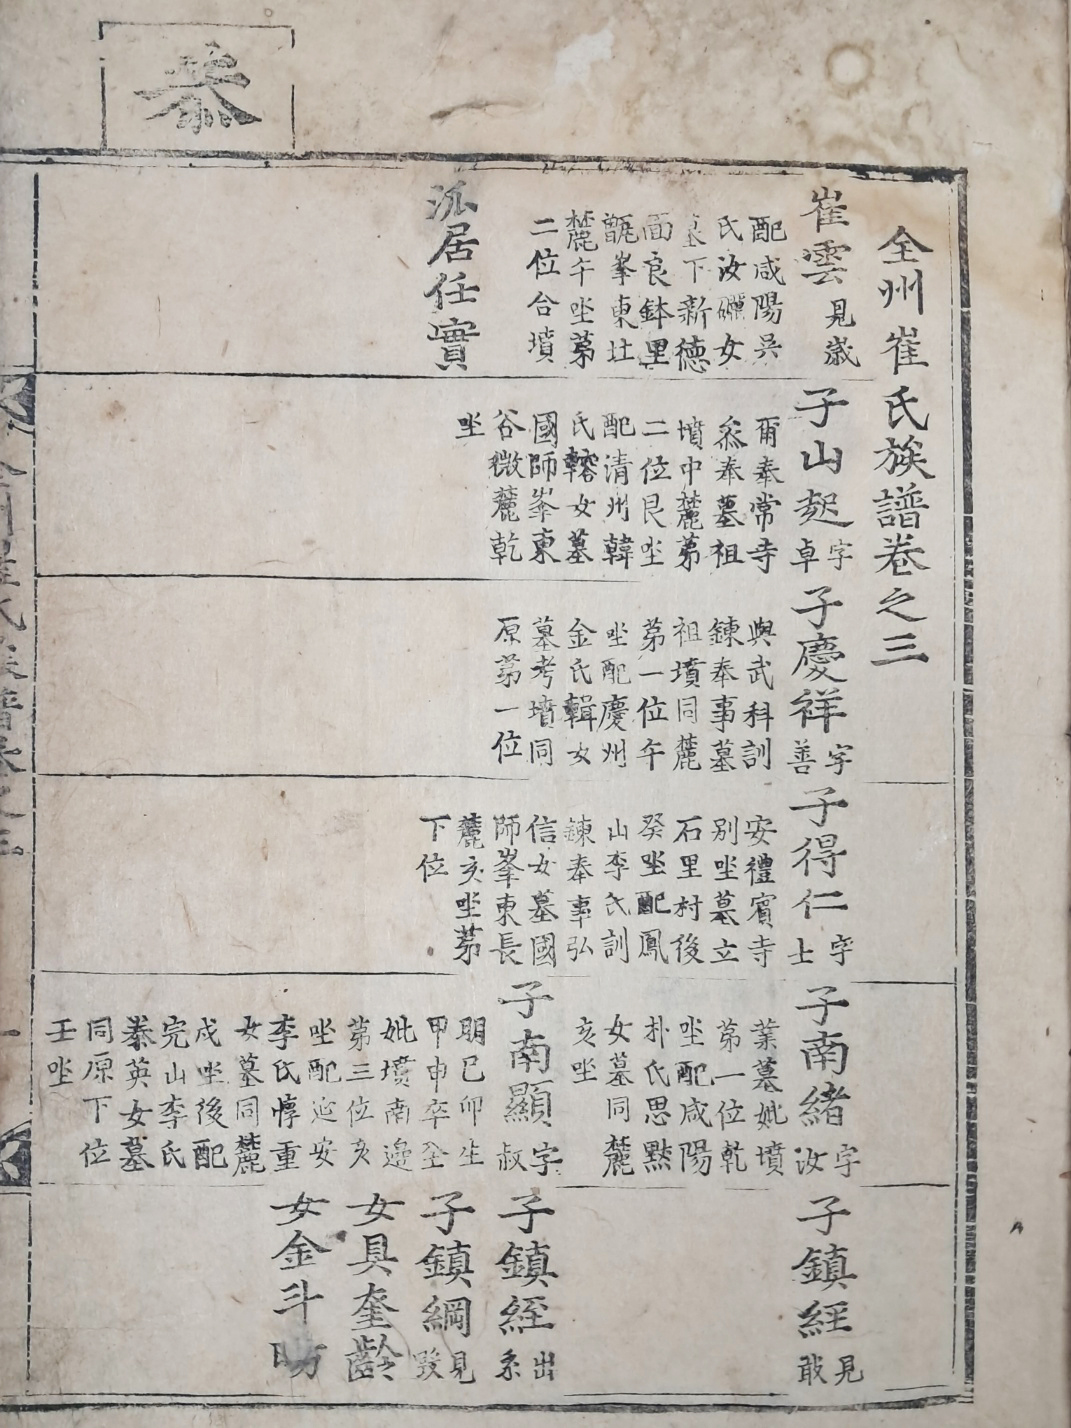 全州崔氏族譜卷之三
崔雲 見崴
配咸陽吳
氏汝礪女
墓下新德
面良鉢里
甑峯東壯
麓午坐苐
二位合墳
派居任實
子山起 字卓
爾奉常寺
奉墓祖
墳中麓苐
二位艮坐
配清州韓
氏輅女墓
國師峯東
谷微麓乾
坐
子慶祥 字善
與武科訓
鍊奉事墓
祖墳同麓
苐一位午
坐配慶州
金氏輯女
墓考墳同
原苐一位
子得仁 字士
安禮賓寺
別坐墓立
石里村後
癸坐配鳳
山李氏訓
鍊奉事弘
信女墓國
師峯東長
麓亥坐苐
下位
子南緒 字汝
業墓妣墳
第一位乾
坐配咸陽
朴氏思㸃
女墓同麓
亥坐
子南顯 字叔
明已卯生
甲申卒全
妣墳南邉
第三位亥
坐配延安
李氏惇重
女墓同麓
戌坐後配
完山李氏
泰英女墓
同原下位
壬坐
子鎮經 見敢
子鎮經 出系
子鎮綱 見毀
女具奎齡
女金斗